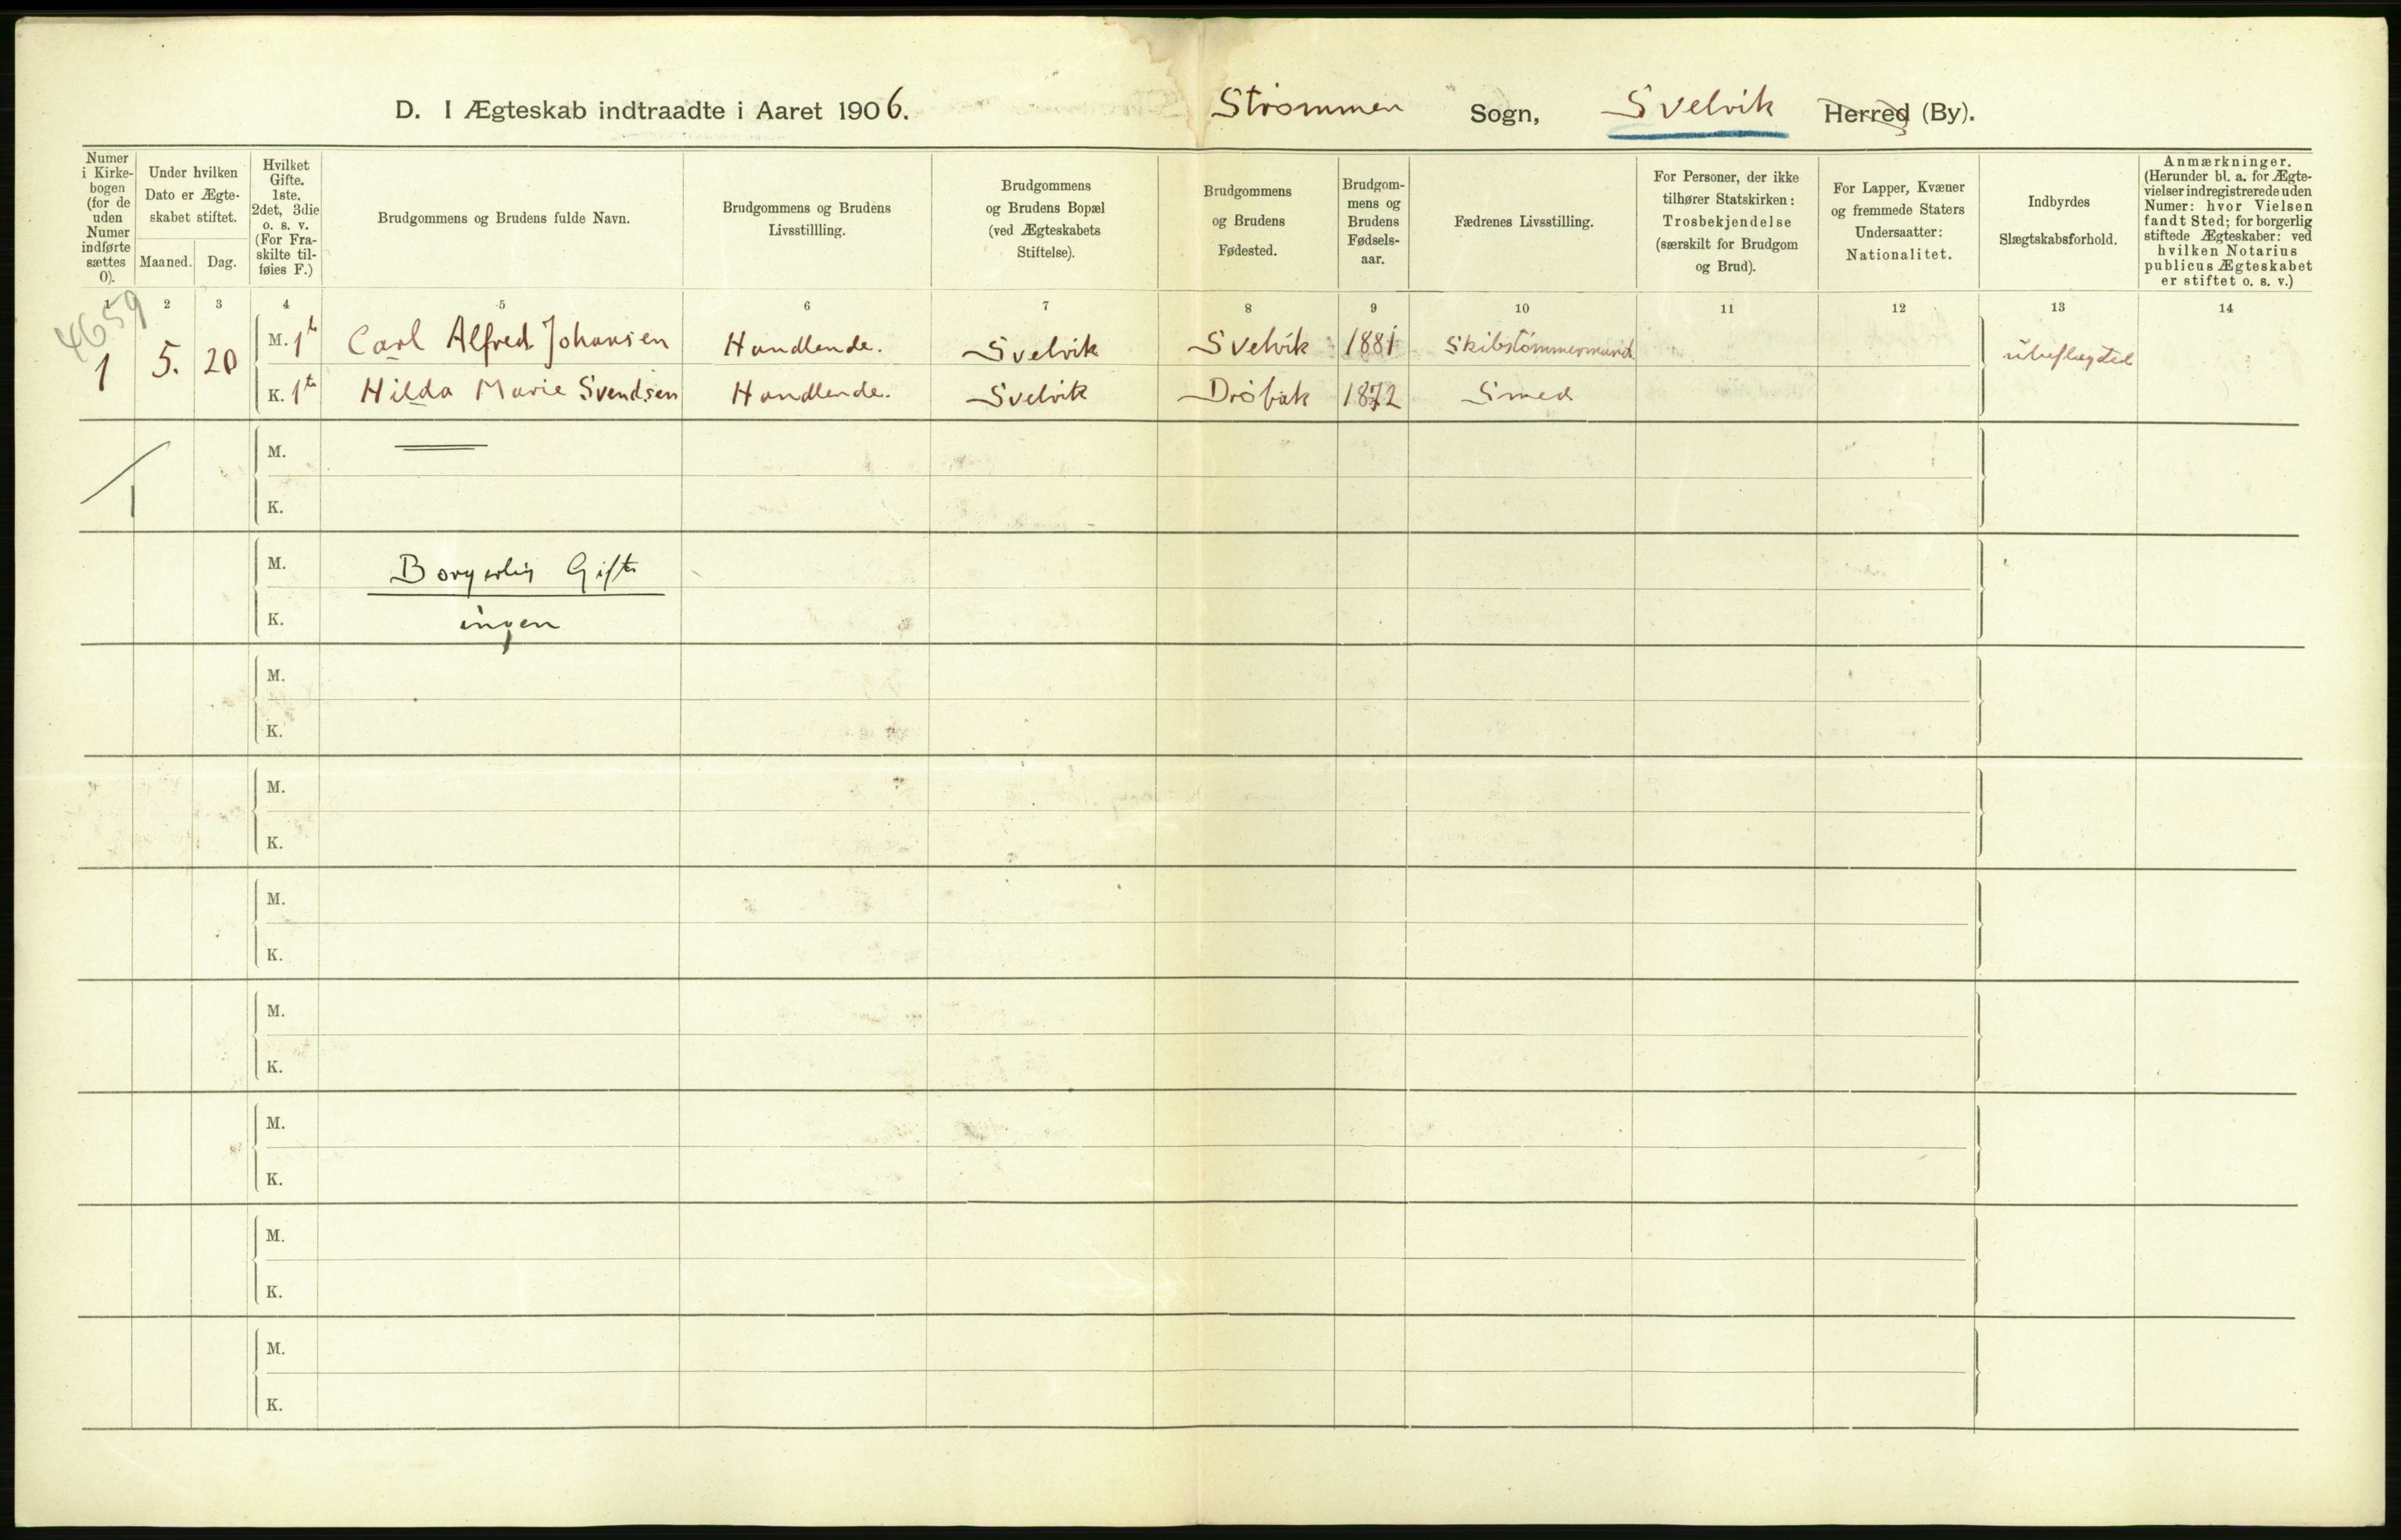 D. I Ægteskab indtraadte i Aaret 1906. Strømmen Sogn, Svelvik Herred (By).
Numer i Kirkebogen (for de uden Numer indførte sættes 0).
Under hvilken Dato er Ægteskabet stiftet.
Maaned. Dag.
Hvilket Gifte. 1ste, 2det, 3die o. s. v. (For Fraskilte tilføies F.)
Brudgommens og Brudens fulde Navn.
Brudgommens og Brudens Livsstillling.
Brudgommens og Brudens Bopæl (ved Ægteskabets Stiftelse).
Brudgommens og Brudens Fødested.
Brudgommens og Brudens Fødselsaar.
Fædrenes Livsstilling.
For Personer, der ikke tilhører Statskirken: Trosbekjendelse (særskilt for Brudgom og Brud).
For Lapper, Kvæner og fremmede Staters Undersaatter: Nationalitet.
Indbyrdes Slægtskabsforhold.
Anmærkninger. (Herunder bl. a. for Ægtevielser indregistrerede uden Numer: hvor Vielsen fandt Sted; for borgerlig stiftede Ægteskaber: ved hvilken Notarius publicus Ægteskabet er stiftet o. s. v.)
1 2 3 4 5 6 7 8 9 10 11 12 13 14
4659
1 5. 20 M. 1te Carl Alfred Johansen Handlende. Svelvik Svelvik 1881 Skibstømmermand ubeslægted
K. 1te Hilda Marie Svendsen Handlende. Svelvik Drøbak 1872 Smed
1
M.
K.
M. Borgerlig Gifte
K. ingen
M.
K.
M.
K.
M.
K.
M.
K.
M.
K.
M.
K.
M.
K.